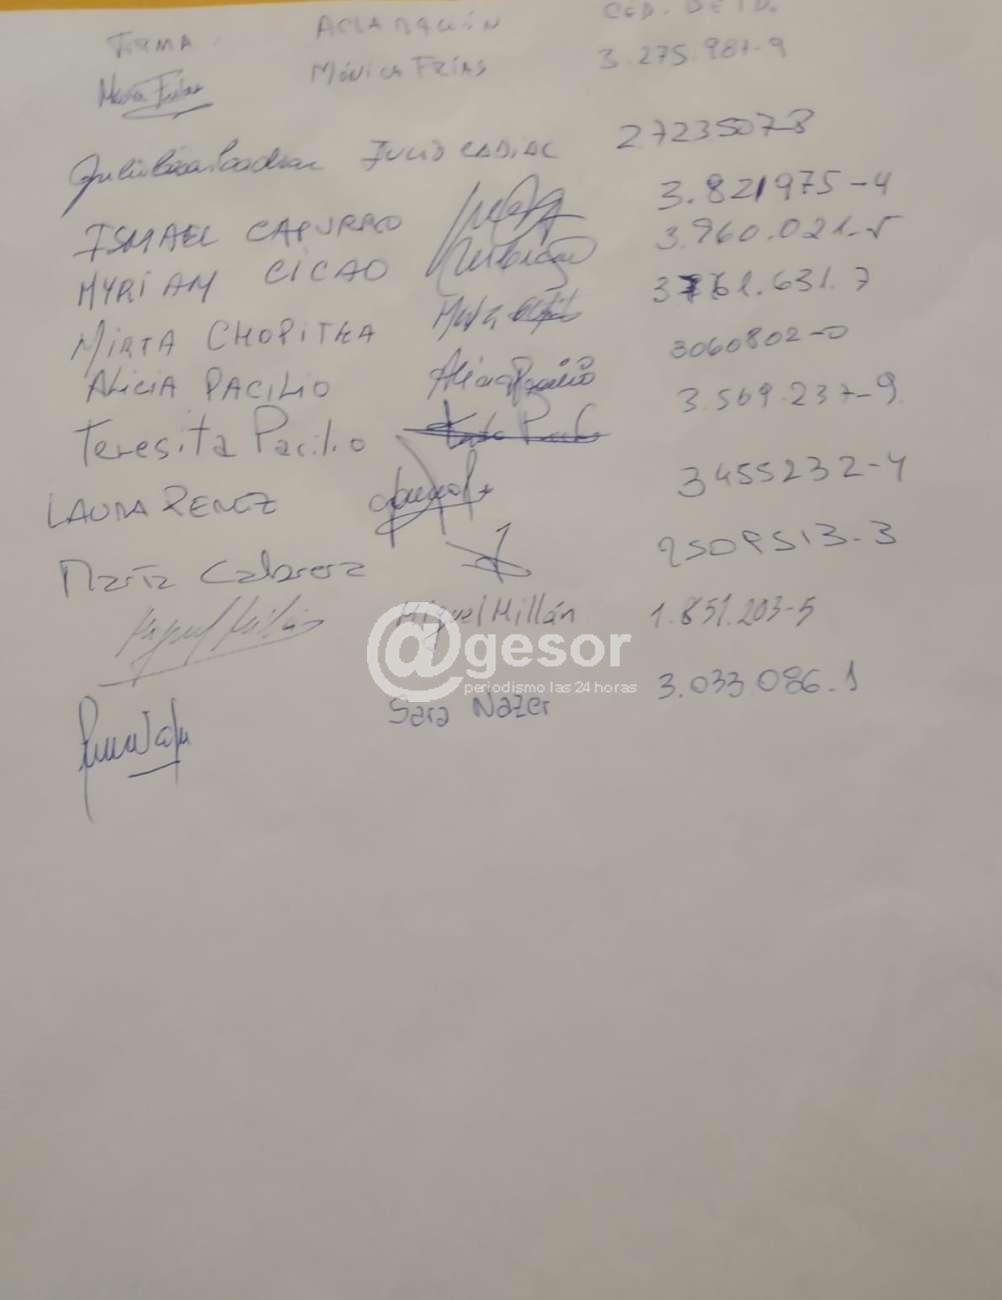 FIRMA ACLARACIÓN CED. DE ID.
Mónica Frías MÓNICA FRÍAS 3.275.987-9
JULIO CADIAC 2723507-3
ISMAEL CAPURRO 3.821975-4
MYRIAM CICAO 3.960.021-5
MIRTA CHOPITEA 3761.631.7
ALICIA PACILIO Alicia Pacilio 3060802-0
Teresita Pacilio 3.569.237-9
LAURA PEREZ 3455232-4
María Cabrera 2509513-3
Miguel Millán Miguel Millán 1.851.203-5
@gesor
periodismo las 24 horas
Sara Nazer 3.033 086.1